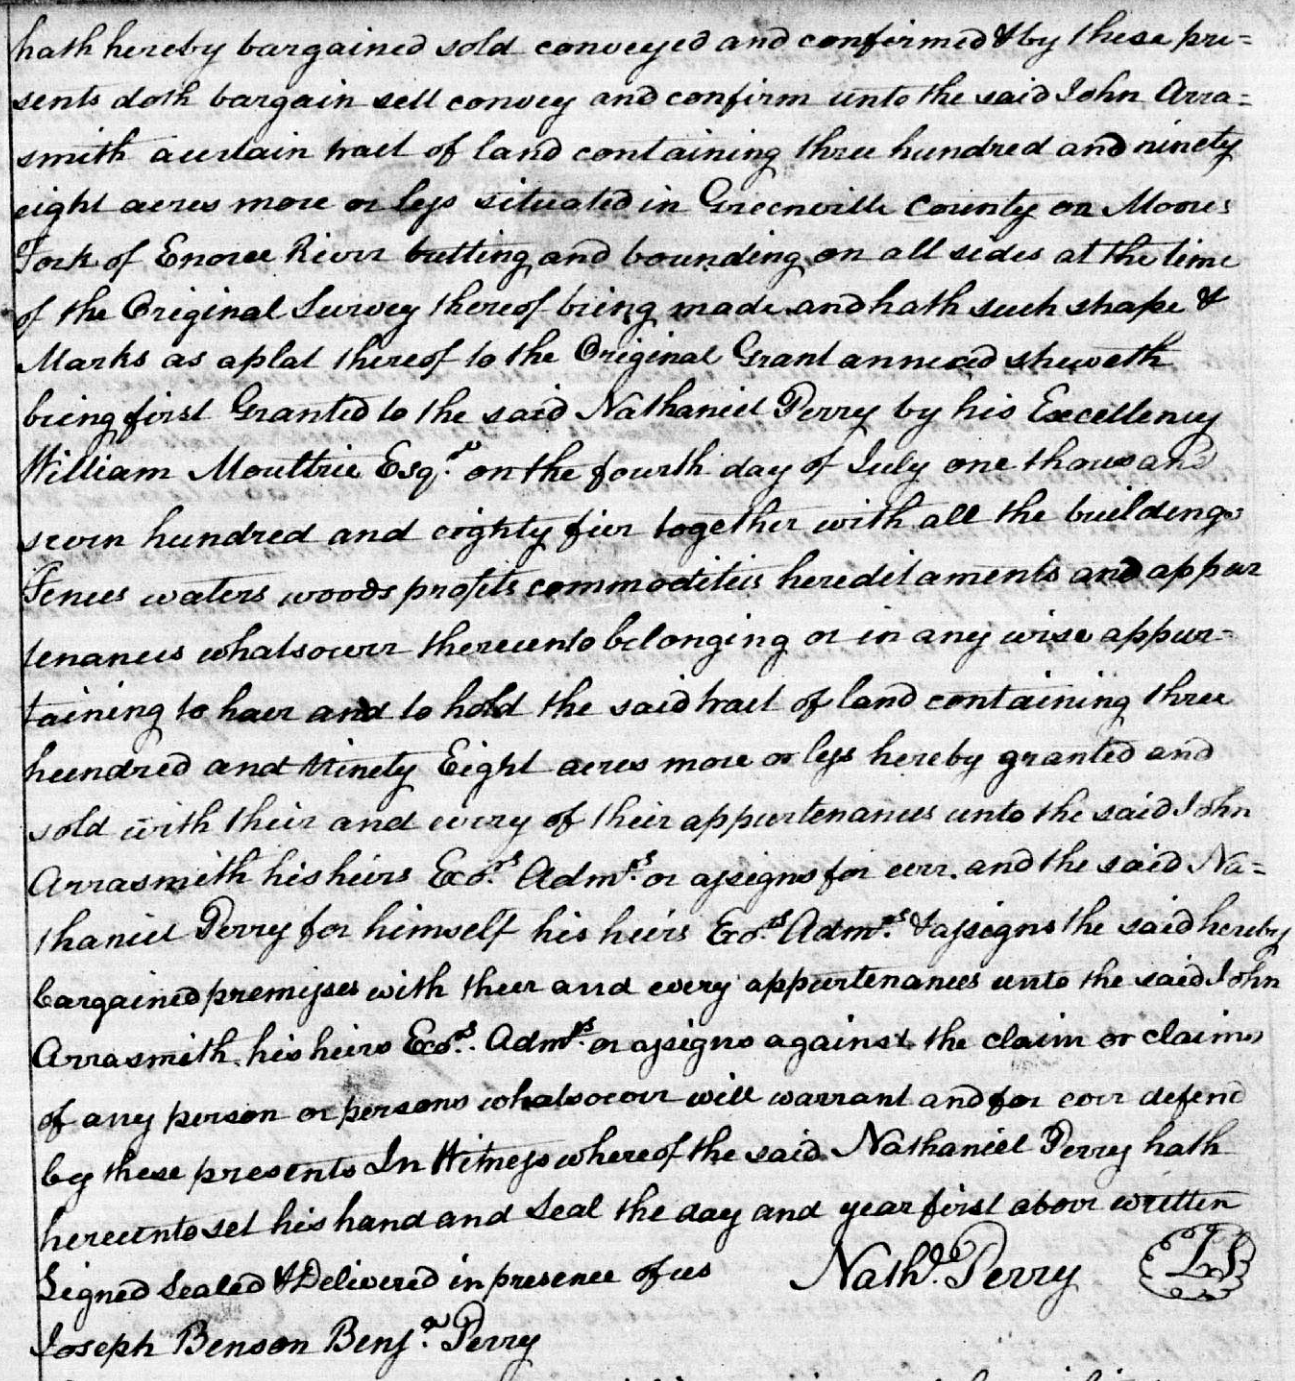 hath hereby bargained sold conveyed and confirmed & by these pre=
sents doth bargain sell convey and confirm unto the said John Arra=
smith a certain tract of land containing three hundred and ninety
eight acres more or less situated in Greenville County on Moores
Fork of Enoree River butting and bounding on all sides at the time
of the Original Survey thereof being made and hath such shape &
Marks as a plat thereof to the Original Grant annexed sheweth
being first Granted to the said Nathaniel Perry by his Excellency
William Moultrie Esqr. on the fourth day of July one thousand
seven hundred and eighty five together with all the buildings
Fences waters woods profits commodities hereditaments and appur
tenances whatsoever thereunto belonging or in any wise appur=
taining to have and to hold the said tract of land containing three
hundred and Ninety Eight acres more or less hereby granted and
sold with their and every of their appurtenances unto the said John
Arrasmith his heirs Exors. Admrs. or assigns for ever. and the said Na=
thaniel Perry for himself his heirs Exors. Admrs. & assigns the said hereby
bargained premisses with their and every appurtenances unto the said John
Arrasmith his heirs Exors. Admrs. or assigns against the claim or claims
of any person or persons whatsoever will warrant and for ever defend
by these presents In Witness whereof the said Nathaniel Perry hath
hereunto set his hand and Seal the day and year first above written
Signed Sealed & Delivered in presence of us Nathl. Perry LS
Joseph Benson Benja. Perry